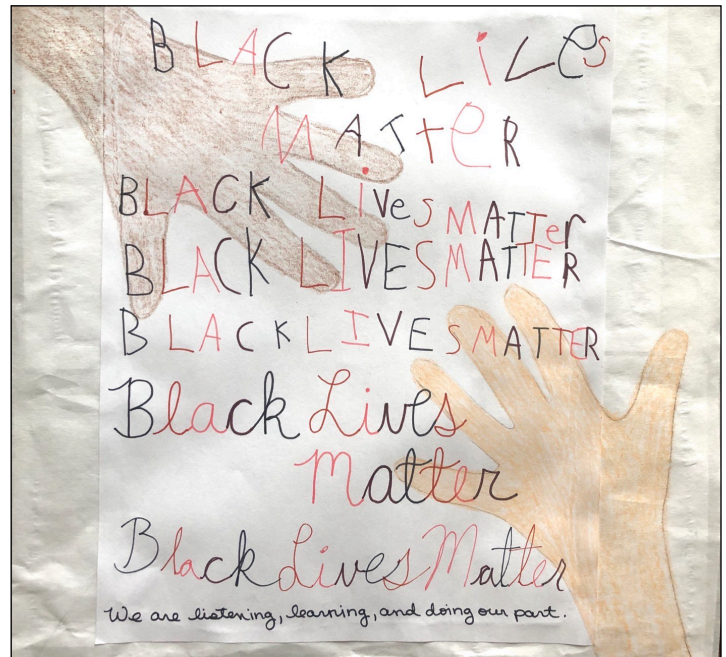 BLACK LiVes
MATteR
BLACK LiVes MATTer
BLACK LIVES MATTER
BLACK LIVES MATTER
Black Lives
Matter
Black Lives Matter
We are listening, learning, and doing our part.